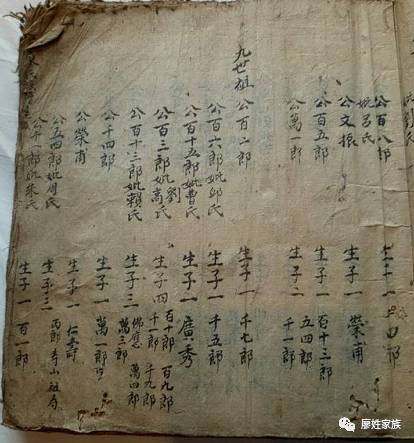 公百八郎
妣呂氏 生子一
公文振 生子一 榮甫
公百五郎 生子一 百十三郎
公萬一郎 生子二 五四郎 千一郎
九世祖 公百二郎 生子一 千七郎
公百六郎妣邱氏 生子一 千五郎
公百十五郎妣曹氏 生子一 廣秀
公百三郎妣劉高氏 生子四 百十郎 百九郎 千十郎 千九郎
公百十三郎妣賴氏 生子三 佛應 萬四郎 萬三郎
公千四郎 生子一 萬一郎
公榮甫 生子一
公五四郎妣周氏 生子三 丙郎
公千一郎妣朱氏 生子一 百一郎
廖姓家族